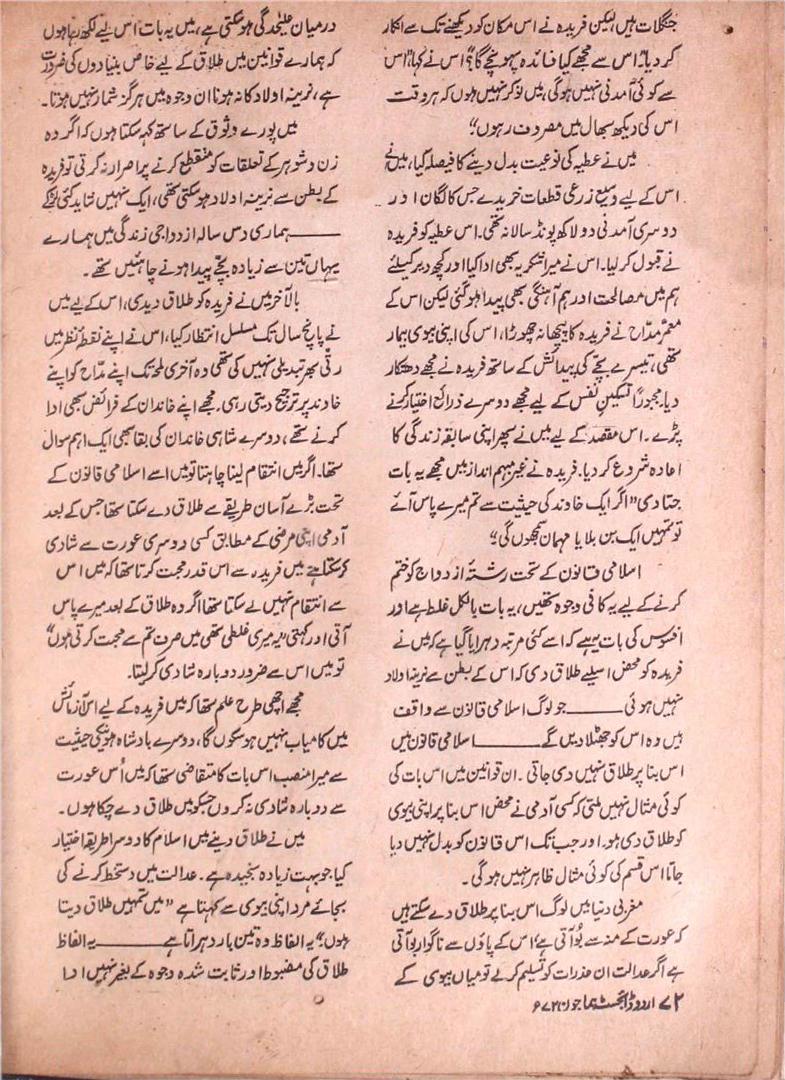 جنگلات ہیں لیکن فریدہ نے اس مکان کو دیکھنے تک سے انکار
کر دیا۔ "اس سے مجھے کیا فائدہ پہونچے گا؟" اس نے کہا "اس
سے کوئی آمدنی نہیں ہوگی، میں نوکر نہیں ہوں کہ ہر وقت
اس کی دیکھ بھال میں مصروف رہوں"۔
میں نے عطیہ کی نوعیت بدل دینے کا فیصلہ کیا، میں نے
اس کے لیے وسیع زرعی قطعات خریدے جس کا لگان اور
دوسری آمدنی دو لاکھ پونڈ سالانہ تھی۔ اس عطیہ کو فریدہ
نے قبول کر لیا۔ اس نے میرا شکریہ بھی ادا کیا اور کچھ دیر کیلئے
ہم میں مصالحت اور ہم آہنگی بھی پیدا ہو گئی لیکن اس کے
معمر مدّاح نے فریدہ کا پیچھا نہ چھوڑا، اس کی اپنی بیوی بیمار
تھی، تیسرے بچے کی پیدائش کے ساتھ فریدہ نے مجھے دھتکار
دیا۔ مجبوراً تسکین نفس کے لیے مجھے دوسرے ذرائع اختیار کرنے
پڑے۔ اس مقصد کے لیے میں نے پھر اپنی سابقہ زندگی کا
اعادہ شروع کر دیا۔ فریدہ نے غیر مبہم انداز میں مجھے یہ بات
جتا دی "اگر ایک خاوند کی حیثیت سے تم میرے پاس آئے
تو تمہیں ایک بن بلایا مہمان سمجھوں گی"۔
اسلامی قانون کے تحت رشتۂ ازدواج کو ختم
کرنے کے لیے یہ کافی وجوہ تھیں، یہ بات بالکل غلط ہے اور
افسوس کی بات یہ ہے کہ اسے کئی مرتبہ دہرایا گیا ہے کہ میں نے
فریدہ کو محض اسلیے طلاق دی کہ اس کے بطن سے نرینہ اولاد
نہیں ہوئی ـــــــ جو لوگ اسلامی قانون سے واقف
ہیں وہ اس کو جھٹلا دیں گے ـــــــ اسلامی قانون میں
اس بنا پر طلاق نہیں دی جاتی۔ ان قوانین میں اس بات کی
کوئی مثال نہیں ملتی کہ کسی آدمی نے محض اس بنا پر اپنی بیوی
کو طلاق دی ہو۔ اور جب تک اس قانون کو بدل نہیں دیا
جاتا اس قسم کی کوئی مثال ظاہر نہیں ہوگی۔
مغربی دنیا میں لوگ اس بنا پر طلاق دے سکتے ہیں
کہ عورت کے منہ سے بُو آتی ہے، اس کے پاؤں سے ناگوار بو آتی
ہے اگر عدالت ان عذرات کو تسلیم کر لے تو میاں بیوی کے
درمیان علیٰحدگی ہو سکتی ہے، میں یہ بات اس لیے لکھ رہا ہوں
کہ ہمارے قوانین میں طلاق کے لیے خاص بنیادوں کی ضرورت
ہے، نرینہ اولاد کا نہ ہونا ان وجوہ میں ہرگز شمار نہیں ہوتا۔
میں پورے وثوق کے ساتھ کہہ سکتا ہوں کہ اگر وہ
زن و شوہر کے تعلقات کو منقطع کرنے پر اصرار نہ کرتی تو فریدہ
کے بطن سے نرینہ اولاد ہو سکتی تھی، ایک نہیں شاید کئی لڑکے
ـــــــ ہماری دس سالہ ازدواجی زندگی میں ہمارے
یہاں تین سے زیادہ بچے پیدا ہونے چاہئیں تھے۔
بالآخر میں نے فریدہ کو طلاق دیدی، اس کے لیے میں
نے پانچ سال تک مسلسل انتظار کیا، اس نے اپنے نقطۂ نظر میں
رتی بھر تبدیلی نہیں کی تھی وہ آخری لمحہ تک اپنے مدّاح کو اپنے
خاوند پر ترجیح دیتی رہی۔ مجھے اپنے خاندان کے فرائض بھی ادا
کرنے تھے، دوسرے شاہی خاندان کی بقا بھی ایک اہم سوال
تھا۔ اگر میں انتقام لینا چاہتا تو میں اسے اسلامی قانون کے
تحت بڑے آسان طریقے سے طلاق دے سکتا تھا جس کے بعد
آدمی اپنی مرضی کے مطابق کسی دوسری عورت سے شادی
کر سکتا ہے میں فریدہ سے اس قدر محبت کرتا تھا کہ میں اس
سے انتقام نہیں لے سکتا تھا اگر وہ طلاق کے بعد میرے پاس
آتی اور کہتی "یہ میری غلطی تھی میں صرف تم سے محبت کرتی ہوں"
تو میں اس سے ضرور دوبارہ شادی کر لیتا۔
مجھے اچھی طرح علم تھا کہ میں فریدہ کے لیے اس آزمائش
میں کامیاب نہیں ہو سکوں گا، دوسرے بادشاہ ہونیکی حیثیت
سے میرا منصب اس بات کا متقاضی تھا کہ میں اُس عورت
سے دوبارہ شادی نہ کروں جسکو میں طلاق دے چکا ہوں۔
میں نے طلاق دینے میں اسلام کا دوسرا طریقہ اختیار
کیا جو بہت زیادہ سنجیدہ ہے۔ عدالت میں دستخط کرنے کی
بجائے مرد اپنی بیوی سے کہتا ہے "میں تمہیں طلاق دیتا
ہوں" یہ الفاظ وہ تین بار دہراتا ہے ـــــــ یہ الفاظ
طلاق کی مضبوط اور ثابت شدہ وجوہ کے بغیر نہیں ادا
۷۲ اردو ڈائجسٹ ہما جون ۷۲ء